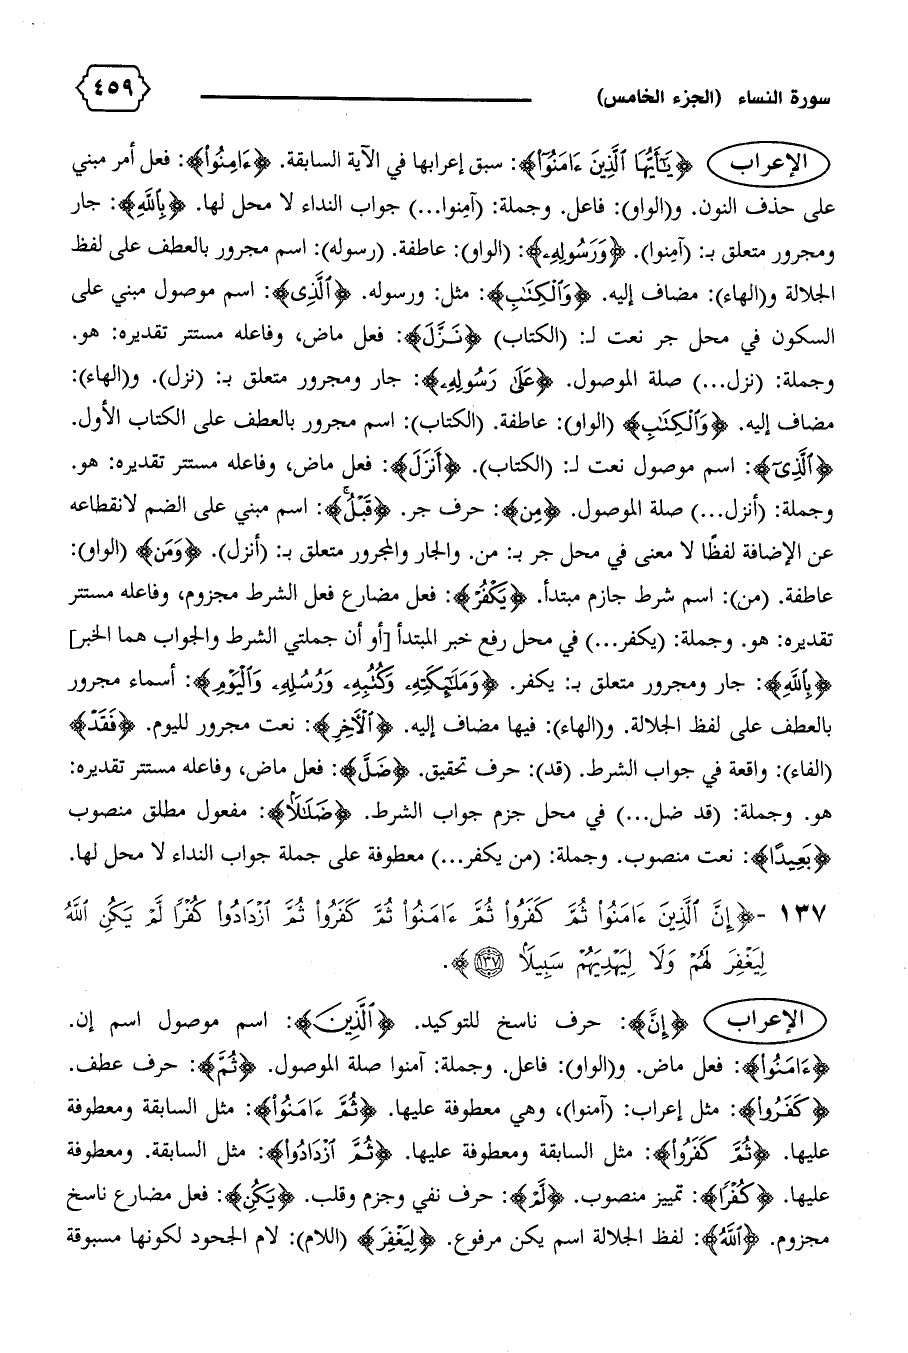 سورة النساء (الجزء الخامس)
٤٥٩
الإعراب ﴿يَٰٓأَيُّهَا ٱلَّذِينَ ءَامَنُوٓا۟﴾: سبق إعرابها في الآية السابقة. ﴿ءَامِنُوا۟﴾: فعل أمر مبني
على حذف النون. و(الواو): فاعل. وجملة: (آمِنوا...) جواب النداء لا محل لها. ﴿بِٱللَّهِ﴾: جار
ومجرور متعلق بـ: (آمِنوا). ﴿وَرَسُولِهِۦ﴾: (الواو): عاطفة. (رسوله): اسم مجرور بالعطف على لفظ
الجلالة و(الهاء): مضاف إليه. ﴿وَٱلْكِتَٰبِ﴾: مثل: ورسوله. ﴿ٱلَّذِى﴾: اسم موصول مبني على
السكون في محل جر نعت لـ: (الكتاب) ﴿نَزَّلَ﴾: فعل ماض، وفاعله مستتر تقديره: هو.
وجملة: (نزل...) صلة الموصول. ﴿عَلَىٰ رَسُولِهِۦ﴾: جار ومجرور متعلق بـ: (نزل). و(الهاء):
مضاف إليه. ﴿وَٱلْكِتَٰبِ﴾ (الواو): عاطفة. (الكتاب): اسم مجرور بالعطف على الكتاب الأول.
﴿ٱلَّذِىٓ﴾: اسم موصول نعت لـ: (الكتاب). ﴿أَنزَلَ﴾: فعل ماض، وفاعله مستتر تقديره: هو.
وجملة: (أنزل...) صلة الموصول. ﴿مِن﴾: حرف جر. ﴿قَبْلُ ۚ﴾: اسم مبني على الضم لانقطاعه
عن الإضافة لفظًا لا معنى في محل جر بـ: من. والجار والمجرور متعلق بـ: (أنزل). ﴿وَمَن﴾ (الواو):
عاطفة. (من): اسم شرط جازم مبتدأ. ﴿يَكْفُرْ﴾: فعل مضارع فعل الشرط مجزوم، وفاعله مستتر
تقديره: هو. وجملة: (يكفر...) في محل رفع خبر المبتدأ [أو أن جملتي الشرط والجواب هما الخبر]
﴿بِٱللَّهِ﴾: جار ومجرور متعلق بـ: يكفر. ﴿وَمَلَٰٓئِكَتِهِۦ وَكُتُبِهِۦ وَرُسُلِهِۦ وَٱلْيَوْمِ﴾: أسماء مجرور
بالعطف على لفظ الجلالة. و(الهاء): فيها مضاف إليه. ﴿ٱلْـَٔاخِرِ﴾: نعت مجرور لليوم. ﴿فَقَدْ﴾
(الفاء): واقعة في جواب الشرط. (قد): حرف تحقيق. ﴿ضَلَّ﴾: فعل ماض، وفاعله مستتر تقديره:
هو. وجملة: (قد ضل...) في محل جزم جواب الشرط. ﴿ضَلَٰلًۢا﴾: مفعول مطلق منصوب
﴿بَعِيدًا﴾: نعت منصوب. وجملة: (من يكفر...) معطوفة على جملة جواب النداء لا محل لها.
١٣٧ -﴿إِنَّ ٱلَّذِينَ ءَامَنُوا۟ ثُمَّ كَفَرُوا۟ ثُمَّ ءَامَنُوا۟ ثُمَّ كَفَرُوا۟ ثُمَّ ٱزْدَادُوا۟ كُفْرًا لَّمْ يَكُنِ ٱللَّهُ
لِيَغْفِرَ لَهُمْ وَلَا لِيَهْدِيَهُمْ سَبِيلًۢا ١٣٧﴾.
الإعراب ﴿إِنَّ﴾: حرف ناسخ للتوكيد. ﴿ٱلَّذِينَ﴾: اسم موصول اسم إن.
﴿ءَامَنُوا۟﴾: فعل ماض. و(الواو): فاعل. وجملة: آمنوا صلة الموصول. ﴿ثُمَّ﴾: حرف عطف.
﴿كَفَرُوا۟﴾: مثل إعراب: (آمنوا)، وهي معطوفة عليها. ﴿ثُمَّ ءَامَنُوا۟﴾: مثل السابقة ومعطوفة
عليها. ﴿ثُمَّ كَفَرُوا۟﴾: مثل السابقة ومعطوفة عليها. ﴿ثُمَّ ٱزْدَادُوا۟﴾: مثل السابقة. ومعطوفة
عليها. ﴿كُفْرًا﴾: تمييز منصوب. ﴿لَّمْ﴾: حرف نفي وجزم وقلب. ﴿يَكُنِ﴾: فعل مضارع ناسخ
مجزوم. ﴿ٱللَّهُ﴾: لفظ الجلالة اسم يكن مرفوع. ﴿لِيَغْفِرَ﴾ (اللام): لام الجحود لكونها مسبوقة